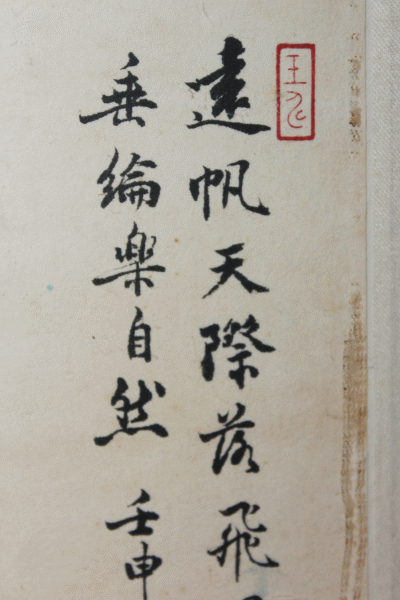 遠帆天際落飛
垂綸樂自然 壬申